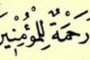 وَرَحْمَةٌ لِّلْمُؤْمِنِينَ